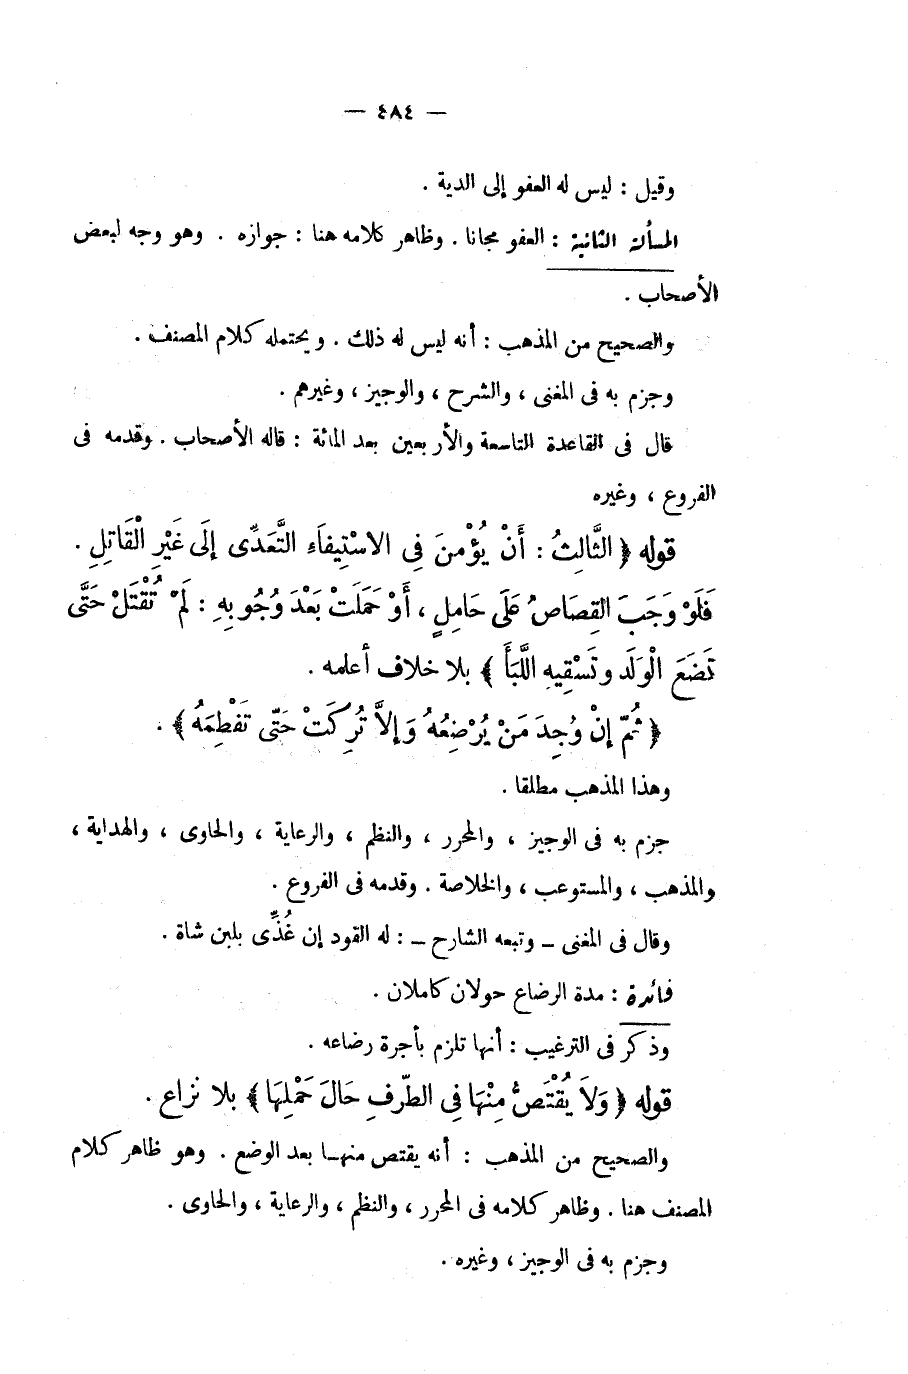 — ٤٨٤ —
وقيل : ليس له العفو إلى الدية .
المسألة الثانية : العفو مجانا . وظاهر كلامه هنا : جوازه . وهو وجه لبعض
الأصحاب .
والصحيح من المذهب : أنه ليس له ذلك . ويحتمله كلام المصنف .
وجزم به فى المغنى ، والشرح ، والوجيز ، وغيرهم .
قال فى القاعدة التاسعة والأربعين بعد المائة : قاله الأصحاب . وقدمه فى
الفروع ، وغيره
قوله ﴿ الثَّالِثُ : أَنْ يُؤْمنَ فِى الاسْتِيفَاءِ التَّعَدِّى إلَى غَيْرِ الْقَاتِلِ .
فَلَوْ وَجَبَ القِصَاصُ عَلَى حَامِلٍ ، أَوْ حَمَلَتْ بَعْدَ وُجُوبِهِ : لَمْ تُقْتَلْ حَتَّى
تَضَعَ الْوَلَد وتَسْقِيهِ اللَّبَأَ ﴾ بلا خلاف أعلمه .
﴿ ثُمّ إنْ وُجِدَ مَنْ يُرْضِعُهُ وَإلاَّ تُرِكَتْ حَتّى تَفْطِمَهُ ﴾ .
وهذا المذهب مطلقا .
جزم به فى الوجيز ، والمحرر ، والنظم ، والرعاية ، والحاوى ، والهداية ،
والمذهب ، والمستوعب ، والخلاصة . وقدمه فى الفروع .
وقال فى المغنى ــ وتبعه الشارح ــ : له القود إن غُذِّى بلبن شاة .
فائدة : مدة الرضاع حولان كاملان .
وذكر فى الترغيب : أنها تلزم بأجرة رضاعه .
قوله ﴿ وَلاَ يُقْتَصُّ مِنْهَا فِى الطّرفِ حَالَ حَمْلِهَا ﴾ بلا نزاع .
والصحيح من المذهب : أنه يقتص منهـا بعد الوضع . وهو ظاهر كلام
المصنف هنا . وظاهر كلامه فى المحرر ، والنظم ، والرعاية ، والحاوى .
وجزم به فى الوجيز ، وغيره .